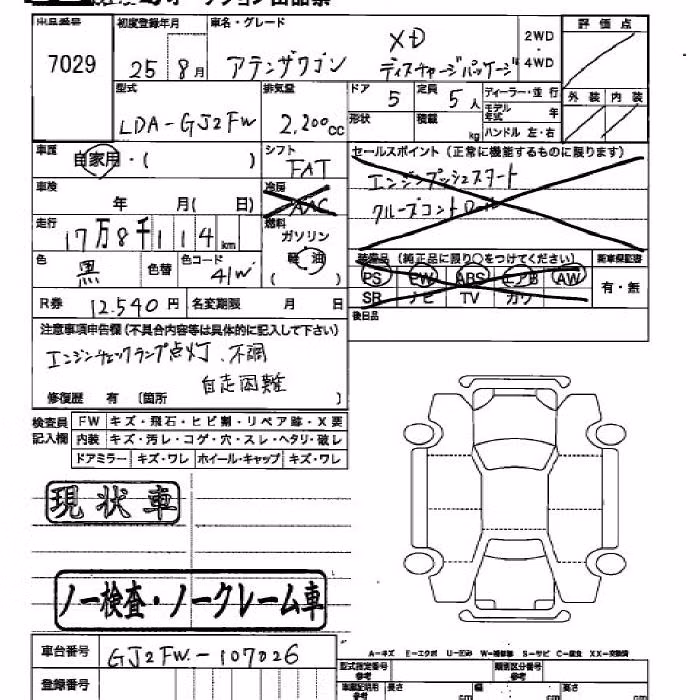 出品番号
7029
初度登録年月
25年8月
車名・グレード
アテンザワゴン
XD
ディスチャージパッケージ
2WD
・
4WD
評価点
型式
LDA-GJ2FW
排気量
2,200cc
ドア
5
定員
5人
形状
積載
kg
ディーラー・並行
モデル年式 年
ハンドル 左・右
外装 内装
車歴
自家用・( )
シフト
FAT
冷房
AAC
セールスポイント(正常に機能するものに限ります)
エンジンプッシュスタート
クルーズコントロール
車検
年 月( 日)
走行
17万8千114km
燃料
ガソリン
軽油
色
黒
色替
色コード
41W
装備品(純正品に限り○をつけてください)
PS PW ABS エアB AW
SR ナビ TV カワ
新車保証書
有・無
R券 12,540円
名変期限 月 日
後日品
注意事項申告欄(不具合内容等は具体的に記入して下さい)
エンジンチェックランプ点灯、不調
自走困難
修復歴 有 〔箇所 〕
検査員記入欄
FW キズ・飛石・ヒビ割・リペア跡・X要
内装 キズ・汚レ・コゲ・穴・スレ・ヘタリ・破レ
ドアミラー キズ・ワレ ホイール・キャップ キズ・ワレ
現状車
ノー検査・ノークレーム車
車台番号 GJ2FW-107026
登録番号
A-キズ E-エクボ U-凹み W-補修跡 S-サビ C-腐食 XX-交換済
型式指定番号 参考
類別区分番号 参考
長さ cm
幅 cm
高さ cm